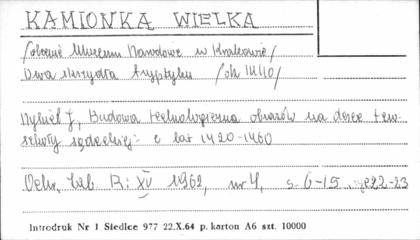 KAMIONKA WIELKA
/obecnie Muzeum Narodowe w Krakowie/
Dwa skrzydła tryptyku /ok 1440/
Nykiel J, Budowa technologiczna obrazów na desce t.zw.
szkoły sądeckiej z lat 1420-1460
Ochr. Zab. R: XV 1962, nr 4, s. 6-15, 22-23
Introdruk Nr 1 Siedlce 977 22.X.64 p. karton A6 szt. 10000